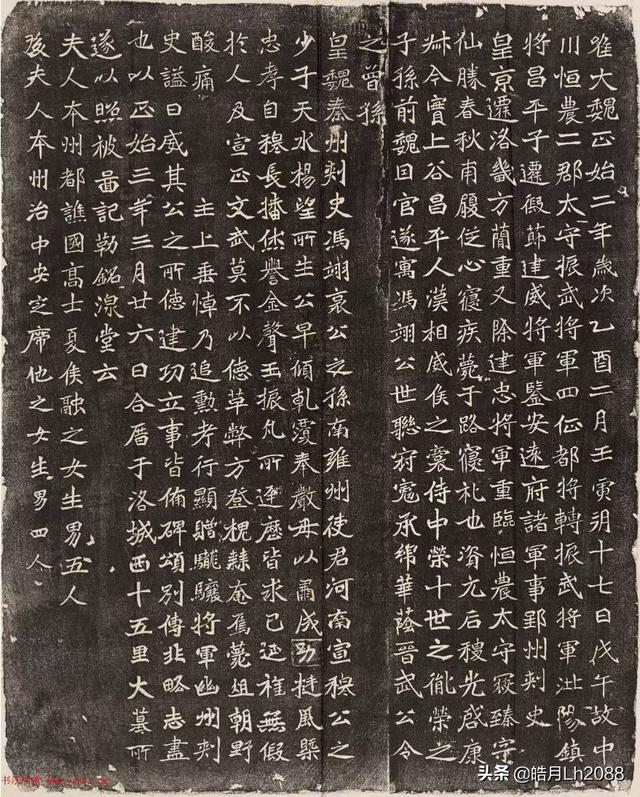 唯大魏正始二年歲次乙酉二月壬寅朔十七日戊午故中
川恒農二郡太守振武將軍四征都將轉振武將軍沘陽鎮
將昌平子遷假節建威將軍鑒安遠府諸軍事郢州刾史
皇京遷洛畿方蕳重又除建忠將軍重臨恒農太守寇臻字
仙勝春秋甫履從心寢疾薨于路寢礼也資元后稷光啓康
叔今實上谷昌平人漢相威侯之裔侍中榮十世之胤榮之
子孫前魏因官遂寓馮翊公世聯寃承綿華蔭晉武公令
之曾孫
皇魏秦州刾史馮翊哀公之孫南雍州使君河南宣穆公之
少子天水楊望所生公早傾乾覆奉嚴母以肅成挺風槩
忠孝自穆長播休譽金聲玉振凡所逕歷皆求已延祚無假
於人及宣正文武莫不以德草弊方登槐棘奄焉薨徂朝野
酸痛 主上垂悼乃追勳考行顯贈驤將軍幽州刾
史謚曰威其公之所德建功立事皆備碑頌別傳非略志盡
也以正始三年三月廿六日合厝于洛城西十五里大墓所
遂以照被啚記勒銘湶堂云
夫人本州都譙國高士夏侯融之女生男五人
後夫人本州治中安定席他之女生男四人
头条 @皓月Lh2088